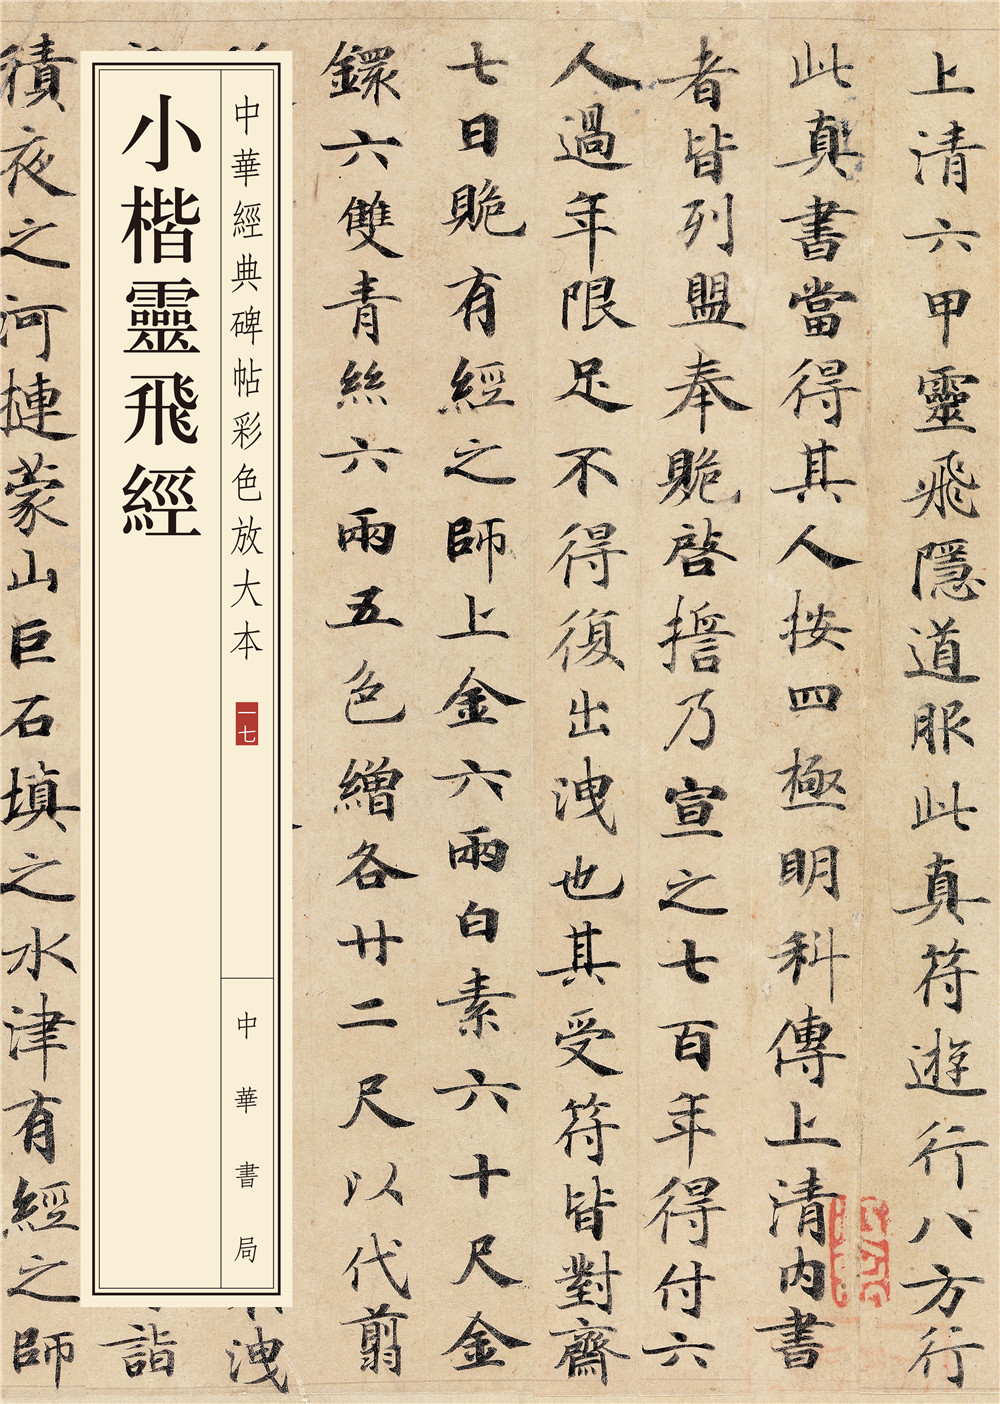 上清六甲靈飛隱道服此真符遊行八方行
此真書當得其人按四極明科傳上清內書
者皆列盟奉貺啓擔乃宣之七百年得付六
人過年限足不得復出洩也其受符皆對齋
七日貺有經之師上金六兩白素六十尺金
鐶六雙青絲六兩五色繒各廿二尺以代翦
洩
詣
積夜之河摙蒙山巨石填之水津有經之師
中華經典碑帖彩色放大本
一七
中華書局
小楷靈飛經